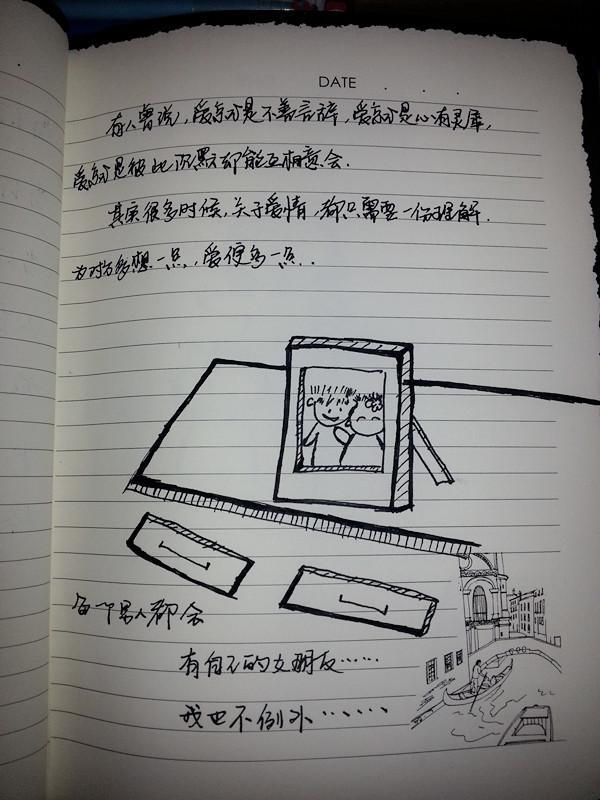 DATE
有人曾说，爱情是不善言辞，爱情是心有灵犀，
爱情是彼此沉默却能互相意会.
其实很多时候,关于爱情,都只需要一份理解.
为对方多想一点,爱便多一点..
每个男人都会
有自己的女朋友……
我也不例外……